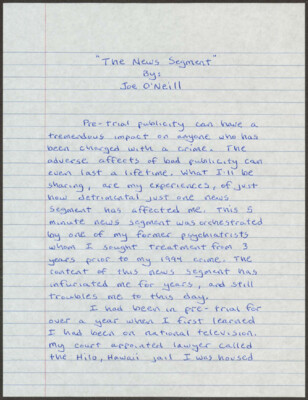 "The News Segment"
By:
Joe O'Neill
Pre-trial publicity can have a
tremendous impact on anyone who has
been charged with a crime. The
adverse affects of bad publicity can
even last a lifetime. What I'll be
sharing, are my experiences, of just
how detrimental just one news
segment has affected me. This 5
minute news segment was orchestrated
by one of my former psychiatrists
whom I sought treatment from 3
years prior to my 1994 crime. The
content of this news segment has
infuriated me for years, and still
troubles me to this day.
I had been in pre-trial for
over a year when I first learned
I had been on national television.
My court appointed lawyer called
the Hilo, Hawaii jail I was housed